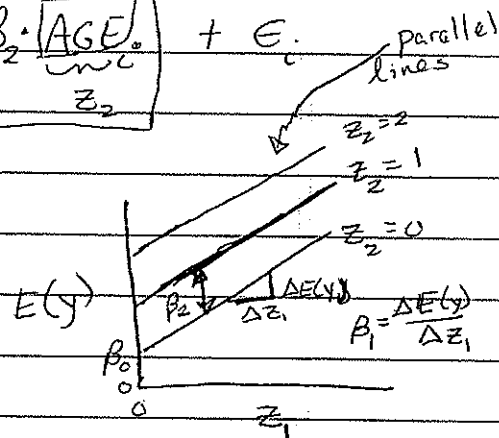 β₂·[AGE]ᵢ + ϵᵢ
z₂
parallel lines
z₂=2
z₂=1
z₂=0
E(y)
β₂
ΔE(y)
Δz₁
β₁=ΔE(y)/Δz₁
β₀
0
0
z₁